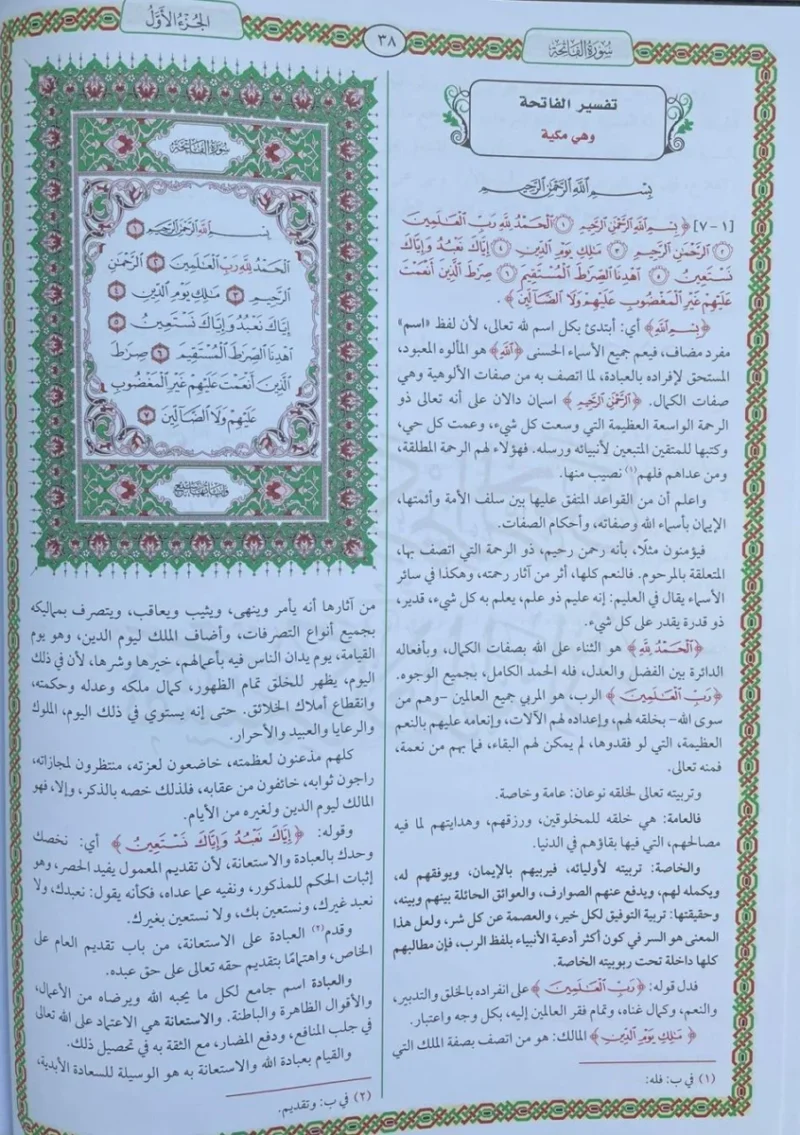 سورة الفاتحة
٣٨
الجزء الأول
تفسير الفاتحة
وهي مكية
بسم الله الرحمن الرحيم
[١ - ٧] ﴿بسم الله الرحمن الرحيم ۝١ الحمد لله رب العلمين
۝٢ الرحمن الرحيم ۝٣ ملك يوم الدين ۝٤ إياك نعبد وإياك
نستعين ۝٥ اهدنا الصرط المستقيم ۝٦ صرط الذين أنعمت
عليهم غير المغضوب عليهم ولا الضالين﴾.
﴿بسم الله﴾ أي: أبتدئ بكل اسم لله تعالى، لأن لفظ «اسم»
مفرد مضاف، فيعم جميع الأسماء الحسنى ﴿الله﴾ هو المألوه المعبود،
المستحق لإفراده بالعبادة، لما اتصف به من صفات الألوهية وهي
صفات الكمال. ﴿الرحمن الرحيم﴾ اسمان دالان على أنه تعالى ذو
الرحمة الواسعة العظيمة التي وسعت كل شيء، وعمت كل حي،
وكتبها للمتقين المتبعين لأنبيائه ورسله. فهؤلاء لهم الرحمة المطلقة،
ومن عداهم فلهم(١) نصيب منها.
واعلم أن من القواعد المتفق عليها بين سلف الأمة وأئمتها،
الإيمان بأسماء الله وصفاته، وأحكام الصفات.
فيؤمنون مثلًا، بأنه رحمن رحيم، ذو الرحمة التي اتصف بها،
المتعلقة بالمرحوم. فالنعم كلها، أثر من آثار رحمته، وهكذا في سائر
الأسماء يقال في العليم: إنه عليم ذو علم، يعلم به كل شيء، قدير،
ذو قدرة يقدر على كل شيء.
﴿الحمد لله﴾ هو الثناء على الله بصفات الكمال، وبأفعاله
الدائرة بين الفضل والعدل، فله الحمد الكامل، بجميع الوجوه.
﴿رب العلمين﴾ الرب، هو المربي جميع العالمين -وهم من
سوى الله- بخلقه لهم، وإعداده لهم الآلات، وإنعامه عليهم بالنعم
العظيمة، التي لو فقدوها، لم يمكن لهم البقاء، فما بهم من نعمة،
فمنه تعالى.
وتربيته تعالى لخلقه نوعان: عامة وخاصة.
فالعامة: هي خلقه للمخلوقين، ورزقهم، وهدايتهم لما فيه
مصالحهم، التي فيها بقاؤهم في الدنيا.
والخاصة: تربيته لأوليائه، فيربيهم بالإيمان، ويوفقهم له،
ويكمله لهم، ويدفع عنهم الصوارف، والعوائق الحائلة بينهم وبينه،
وحقيقتها: تربية التوفيق لكل خير، والعصمة عن كل شر، ولعل هذا
المعنى هو السر في كون أكثر أدعية الأنبياء بلفظ الرب، فإن مطالبهم
كلها داخلة تحت ربوبيته الخاصة.
فدل قوله: ﴿رب العلمين﴾ على انفراده بالخلق والتدبير،
والنعم، وكمال غناه، وتمام فقر العالمين إليه، بكل وجه واعتبار.
﴿ملك يوم الدين﴾ المالك: هو من اتصف بصفة الملك التي
(١) في ب: فله:
سورة الفاتحة
بسم الله الرحمن الرحيم ۝١
الحمد لله رب العلمين ۝٢ الرحمن
الرحيم ۝٣ ملك يوم الدين ۝٤
إياك نعبد وإياك نستعين ۝٥
اهدنا الصرط المستقيم ۝٦ صرط
الذين أنعمت عليهم غير المغضوب
عليهم ولا الضالين ۝٧
وآياتها سبع
من آثارها أنه يأمر وينهى، ويثيب ويعاقب، ويتصرف بمماليكه
بجميع أنواع التصرفات، وأضاف الملك ليوم الدين، وهو يوم
القيامة، يوم يدان الناس فيه بأعمالهم، خيرها وشرها، لأن في ذلك
اليوم، يظهر للخلق تمام الظهور، كمال ملكه وعدله وحكمته،
وانقطاع أملاك الخلائق. حتى إنه يستوي في ذلك اليوم، الملوك
والرعايا والعبيد والأحرار.
كلهم مذعنون لعظمته، خاضعون لعزته، منتظرون لمجازاته،
راجون ثوابه، خائفون من عقابه، فلذلك خصه بالذكر، وإلا، فهو
المالك ليوم الدين ولغيره من الأيام.
وقوله: ﴿إياك نعبد وإياك نستعين﴾ أي: نخصك
وحدك بالعبادة والاستعانة، لأن تقديم المعمول يفيد الحصر، وهو
إثبات الحكم للمذكور، ونفيه عما عداه، فكأنه يقول: نعبدك، ولا
نعبد غيرك، ونستعين بك، ولا نستعين بغيرك.
وقدم(٢) العبادة على الاستعانة، من باب تقديم العام على
الخاص، واهتمامًا بتقديم حقه تعالى على حق عبده.
والعبادة اسم جامع لكل ما يحبه الله ويرضاه من الأعمال،
والأقوال الظاهرة والباطنة. والاستعانة هي الاعتماد على الله تعالى
في جلب المنافع، ودفع المضار، مع الثقة به في تحصيل ذلك.
والقيام بعبادة الله والاستعانة به هو الوسيلة للسعادة الأبدية،
(٢) في ب: وتقديم.